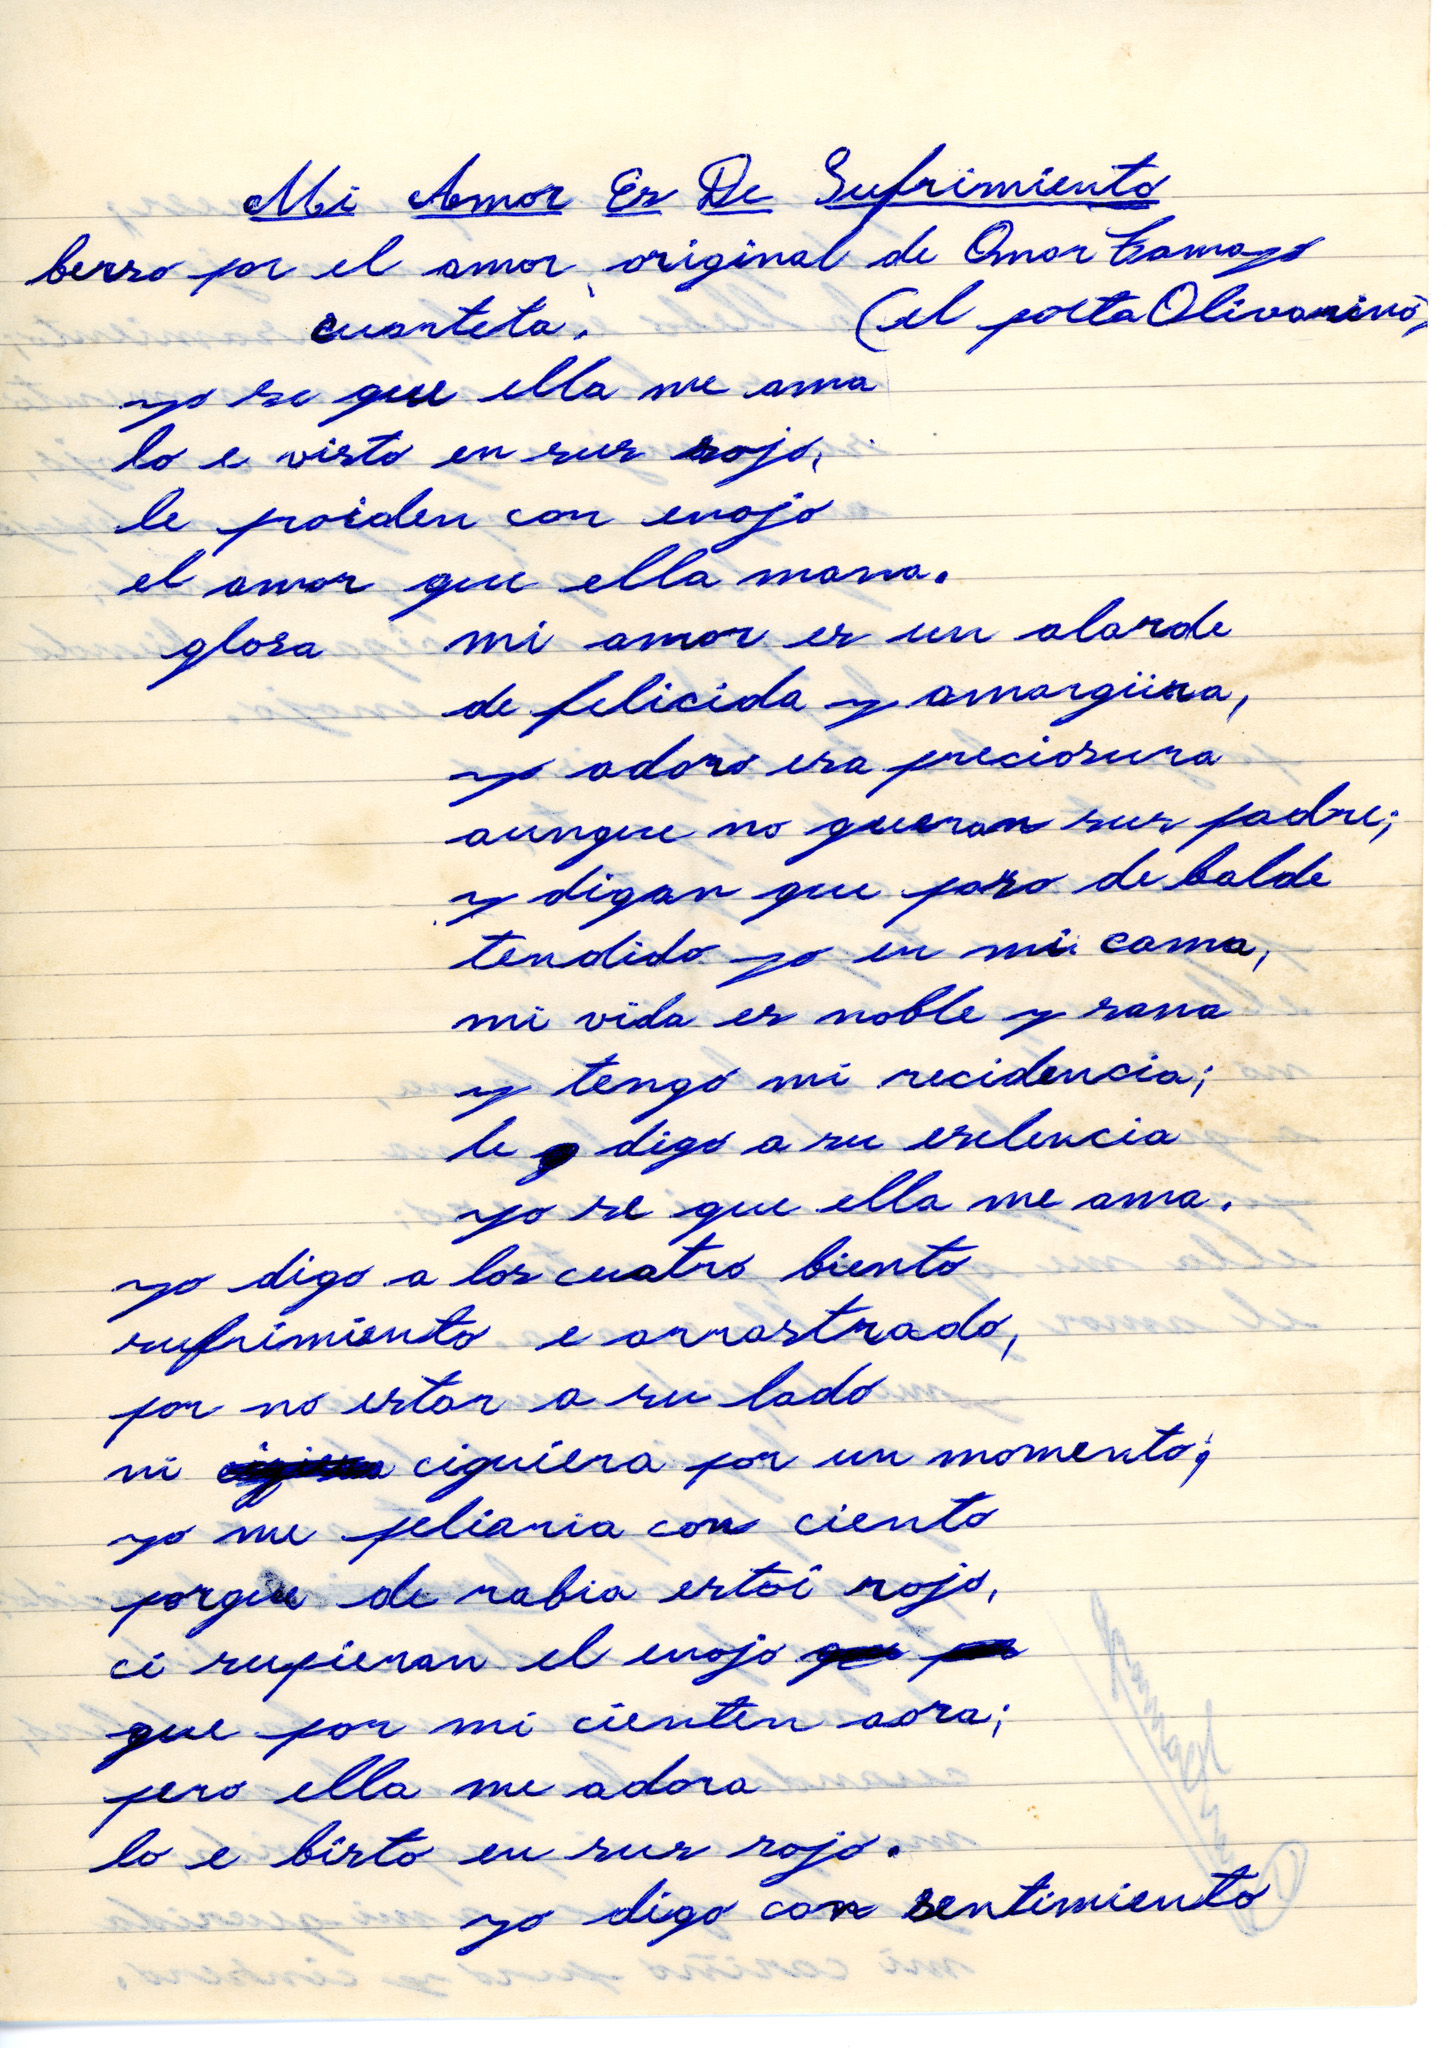 Mi Amor Es De Sufrimiento
berso por el amor original de Omar Tamayo
cuarteta. (el poeta Olivarino)
yo se que ella me ama
lo e visto en sus sojo,
le proiden con enojo
el amor que ella mana.
glosa mi amor es un alarde
de felicida y amargüra,
yo adoro esa preciosura
aunque no queran sus padre;
y digan que paso de balde
tendido yo en mi cama,
mi vida es noble y sana
y tengo mi recidencia;
le digo a su eselencia
yo se que ella me ama.
yo digo a los cuatro biento
sufrimiento e arrastrado,
por no estar a su lado
ni ciquiera por un momento;
yo me peliaria con ciento
porque de rabia estoi rojo,
ci supieran el enojo
que por mi cienten aora;
pero ella me adora
lo e bisto en sus sojo.
yo digo con sentimiento